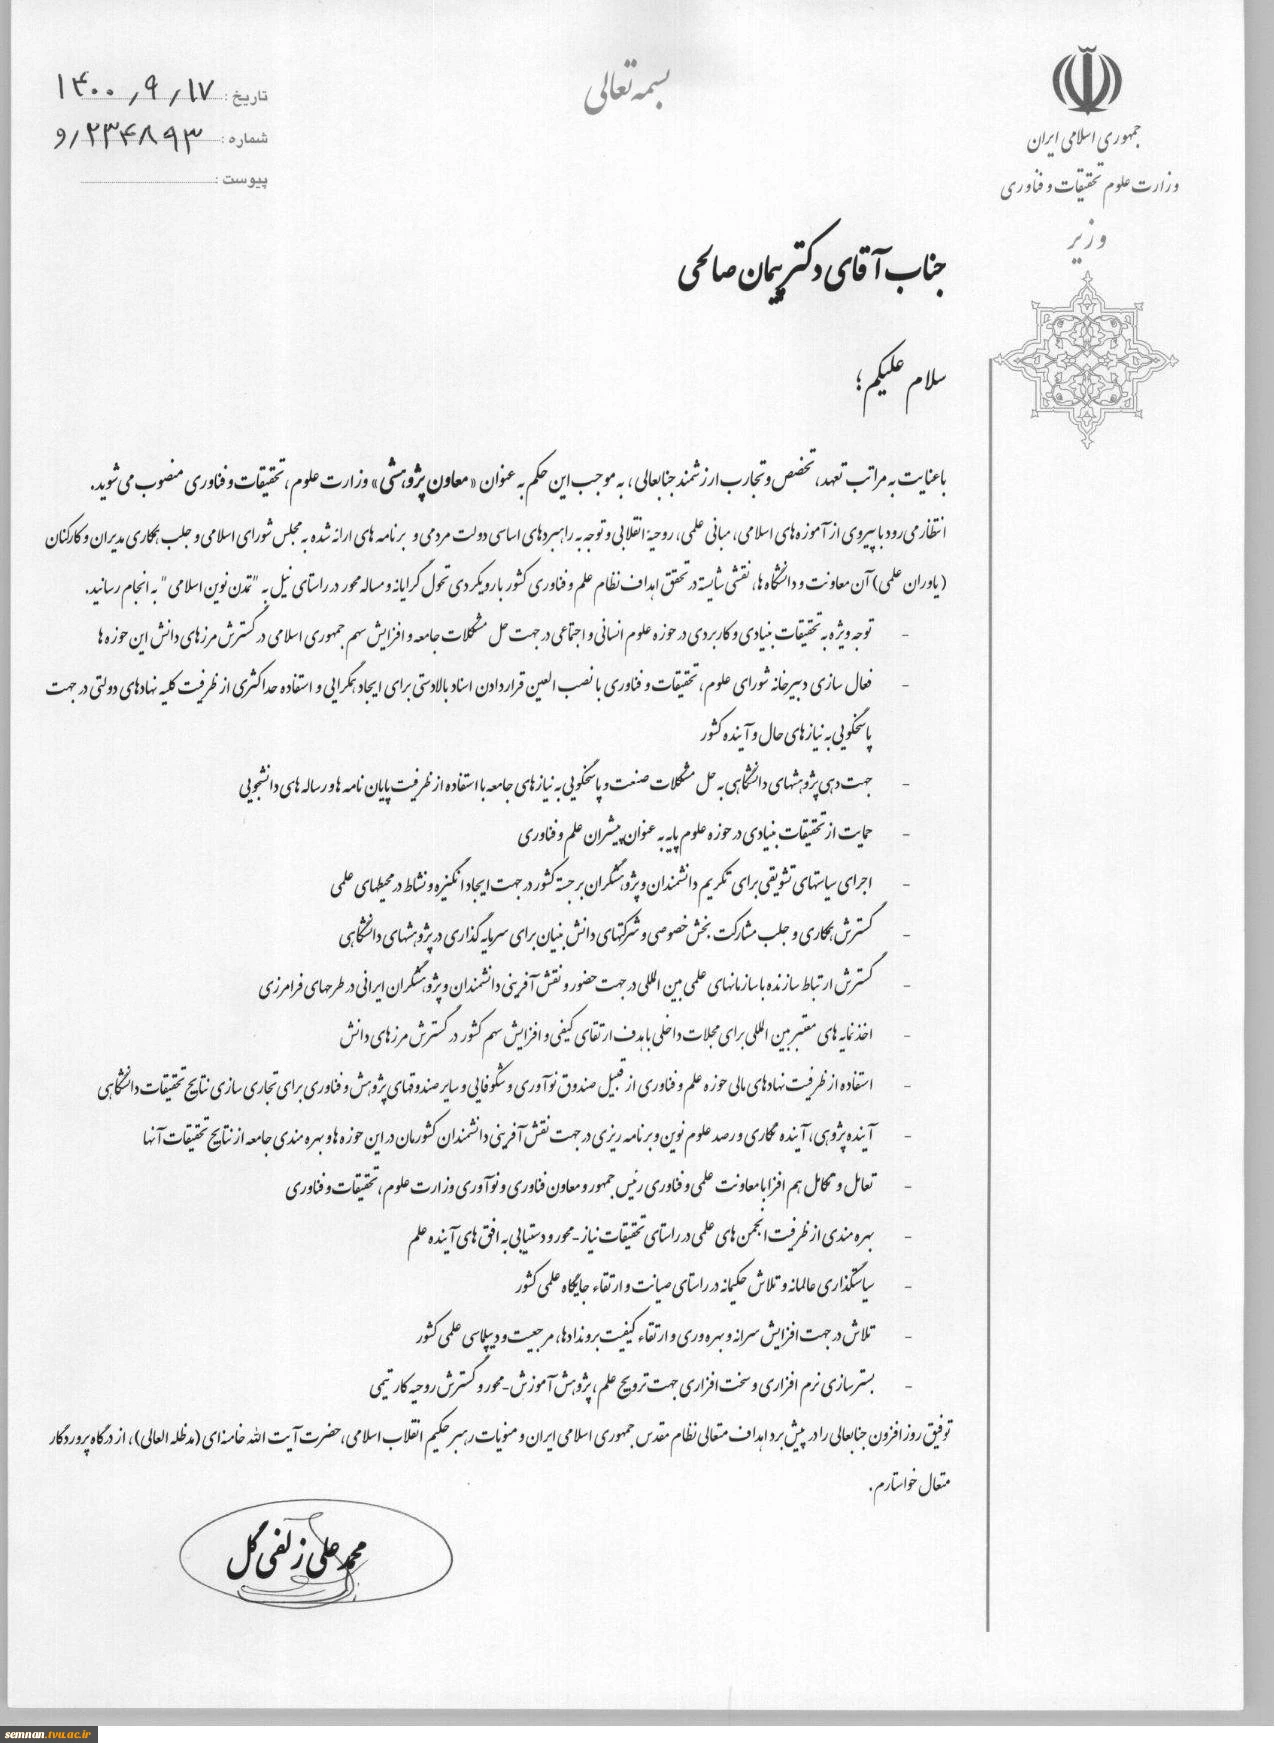 بسمه تعالی
جمهوری اسلامی ایران
وزارت علوم تحقیقات و فناوری
وزیر
تاریخ : ۱۴۰۰٫۹٫۱۷
شماره : ۲۳۴۸۹۳٫و
پیوست :
جناب آقای دکتر پیمان صالحی
سلام علیکم؛
با عنایت به مراتب تعهد، تخصص و تجارب ارزشمند جنابعالی، به موجب این حکم به عنوان «معاون پژوهشی» وزارت علوم، تحقیقات و فناوری منصوب می‌شوید.
انتظار می رود با پیروی از آموزه های اسلامی، مبانی علمی، روحیۀ انقلابی و توجه به راهبردهای اساسی دولت مردمی و برنامه های ارائه شده به مجلس شورای اسلامی و جلب همکاری مدیران و کارکنان
(یاوران علمی) آن معاونت و دانشگاه ها، نقشی شایسته در تحقق اهداف نظام علم و فناوری کشور با رویکردی تحول گرایانه و مساله محور در راستای نیل به "تمدن نوین اسلامی" به انجام رسانید.
- توجه ویژه به تحقیقات بنیادی و کاربردی در حوزه علوم انسانی و اجتماعی در جهت حل مشکلات جامعه و افزایش سهم جمهوری اسلامی در گسترش مرزهای دانش این حوزه ها
- فعال سازی دبیرخانه شورای علوم، تحقیقات و فناوری با نصب العین قرار دادن اسناد بالادستی برای ایجاد همگرایی و استفاده حداکثری از ظرفیت کلیه نهادهای دولتی در جهت
پاسخگویی به نیازهای حال و آینده کشور
- جهت دهی پژوهشهای دانشگاهی به حل مشکلات صنعت و پاسخگویی به نیازهای جامعه با استفاده از ظرفیت پایان نامه ها و رساله های دانشجویی
- حمایت از تحقیقات بنیادی در حوزه علوم پایه به عنوان پیشران علم و فناوری
- اجرای سیاستهای تشویقی برای تکریم دانشمندان و پژوهشگران برجسته کشور در جهت ایجاد انگیزه و نشاط در محیطهای علمی
- گسترش همکاری و جلب مشارکت بخش خصوصی و شرکتهای دانش بنیان برای سرمایه گذاری در پژوهشهای دانشگاهی
- گسترش ارتباط سازنده با سازمانهای علمی بین المللی در جهت حضور و نقش آفرینی دانشمندان و پژوهشگران ایرانی در طرحهای فرامرزی
- اخذ نمایه های معتبر بین المللی برای مجلات داخلی با هدف ارتقای کیفی و افزایش سهم کشور در گسترش مرزهای دانش
- استفاده از ظرفیت نهادهای مالی حوزه علم و فناوری از قبیل صندوق نوآوری و شکوفایی و سایر صندوقهای پژوهش و فناوری برای تجاری سازی نتایج تحقیقات دانشگاهی
- آینده پژوهی، آینده نگاری و رصد علوم نوین و برنامه ریزی در جهت نقش آفرینی دانشمندان کشورمان در این حوزه ها و بهره مندی جامعه از نتایج تحقیقات آنها
- تعامل و تکامل هم افزا با معاونت علمی و فناوری رئیس جمهور و معاون فناوری و نوآوری وزارت علوم، تحقیقات و فناوری
- بهره مندی از ظرفیت انجمن های علمی در راستای تحقیقات نیاز-محور و دستیابی به افق های آینده علم
- سیاستگذاری عالمانه و تلاش حکیمانه در راستای صیانت و ارتقاء جایگاه علمی کشور
- تلاش در جهت افزایش سرانه و بهره وری و ارتقاء کیفیت بروندادها، مرجعیت و دیپلماسی علمی کشور
- بسترسازی نرم افزاری و سخت افزاری جهت ترویج علم، پژوهش آموزش-محور و گسترش روحیه کار تیمی
توفیق روز افزون جنابعالی را در پیش برد اهداف متعالی نظام مقدس جمهوری اسلامی ایران و منویات رهبر حکیم انقلاب اسلامی، حضرت آیت الله خامنه ای (مدظله العالی)، از درگاه پروردگار
متعال خواستارم.
محمد علی زلفی گل
semnan.tvu.ac.ir